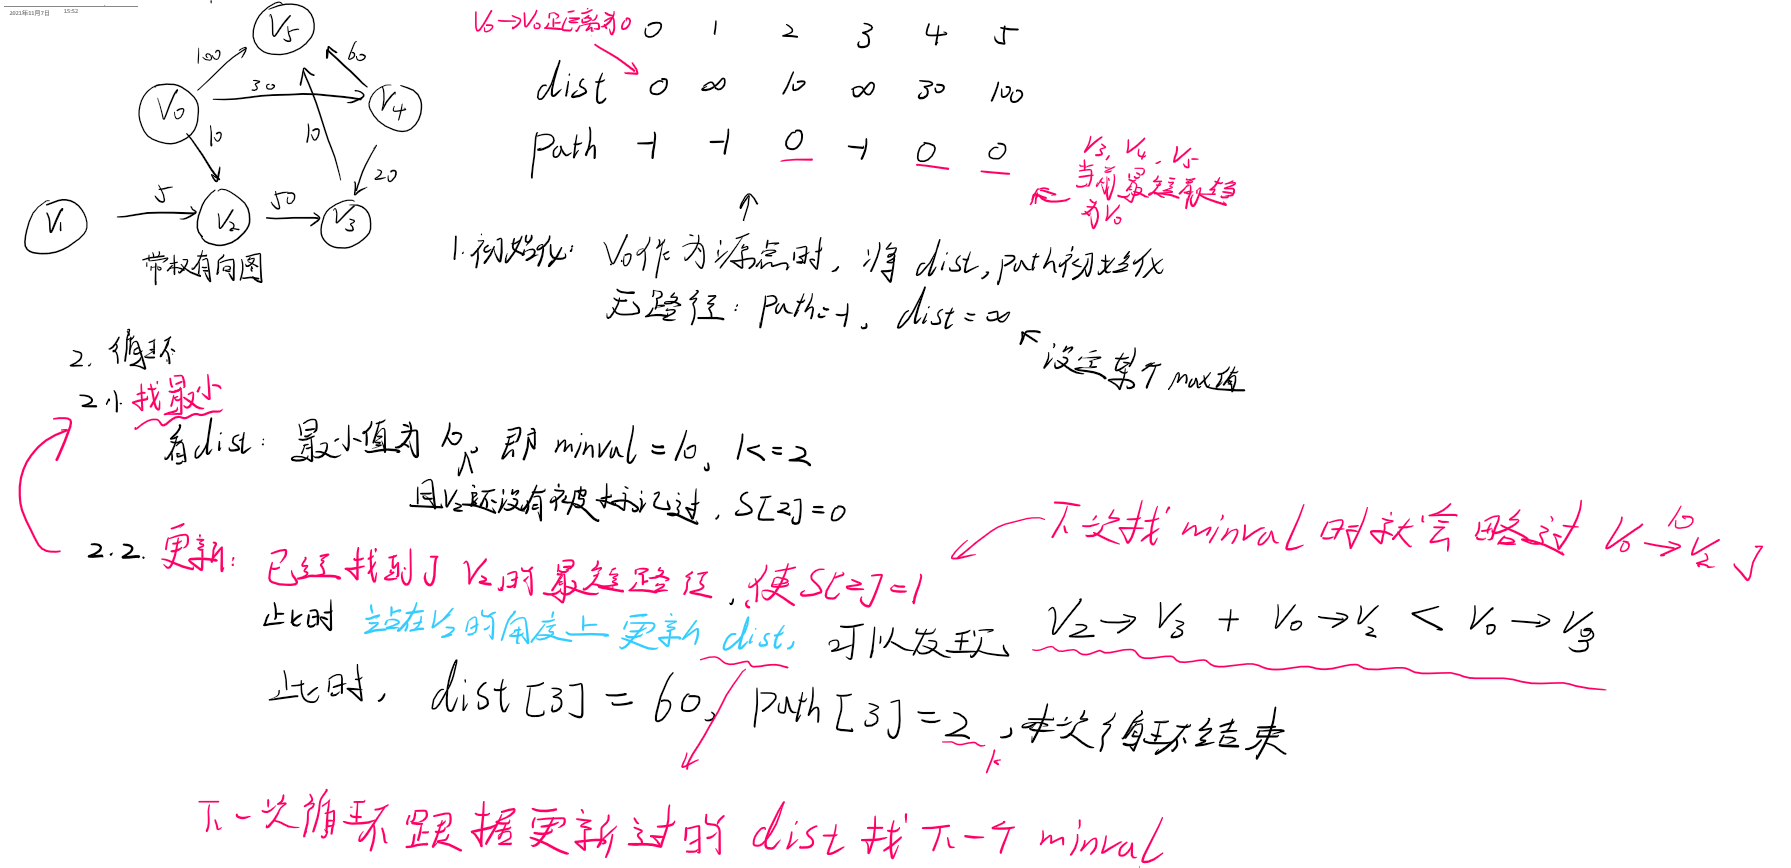 2021年11月7日 15:52
V5
100
60
30
V0
V4
10
10
20
V1
5
V2
50
V3
带权有向图
V0→V0距离为0
0 1 2 3 4 5
dist 0 ∞ 10 ∞ 30 100
path -1 -1 0 -1 0 0
V3, V4, V5
当前最短前趋
为V0
1.初始化: V0作为源点时, 将 dist, path初始化
无路径: path=-1, dist=∞
设定某个max值
2. 循环
2.1. 找最小
看dist: 最小值为 10, 即 minval=10, k=2
且V2还没有被标记过, S[2]=0
2.2. 更新: 已经找到了 V2的最短路径, 使S[2]=1
下次找 minval 时就会略过 V0→V2 了
10
此时 站在V2的角度上更新 dist, 可以发现, V2→V3 + V0→V2 < V0→V3
此时, dist[3]=60, path[3]=2, 本次循环结束
k
下一次循环 跟据更新过的 dist 找下一个 minval